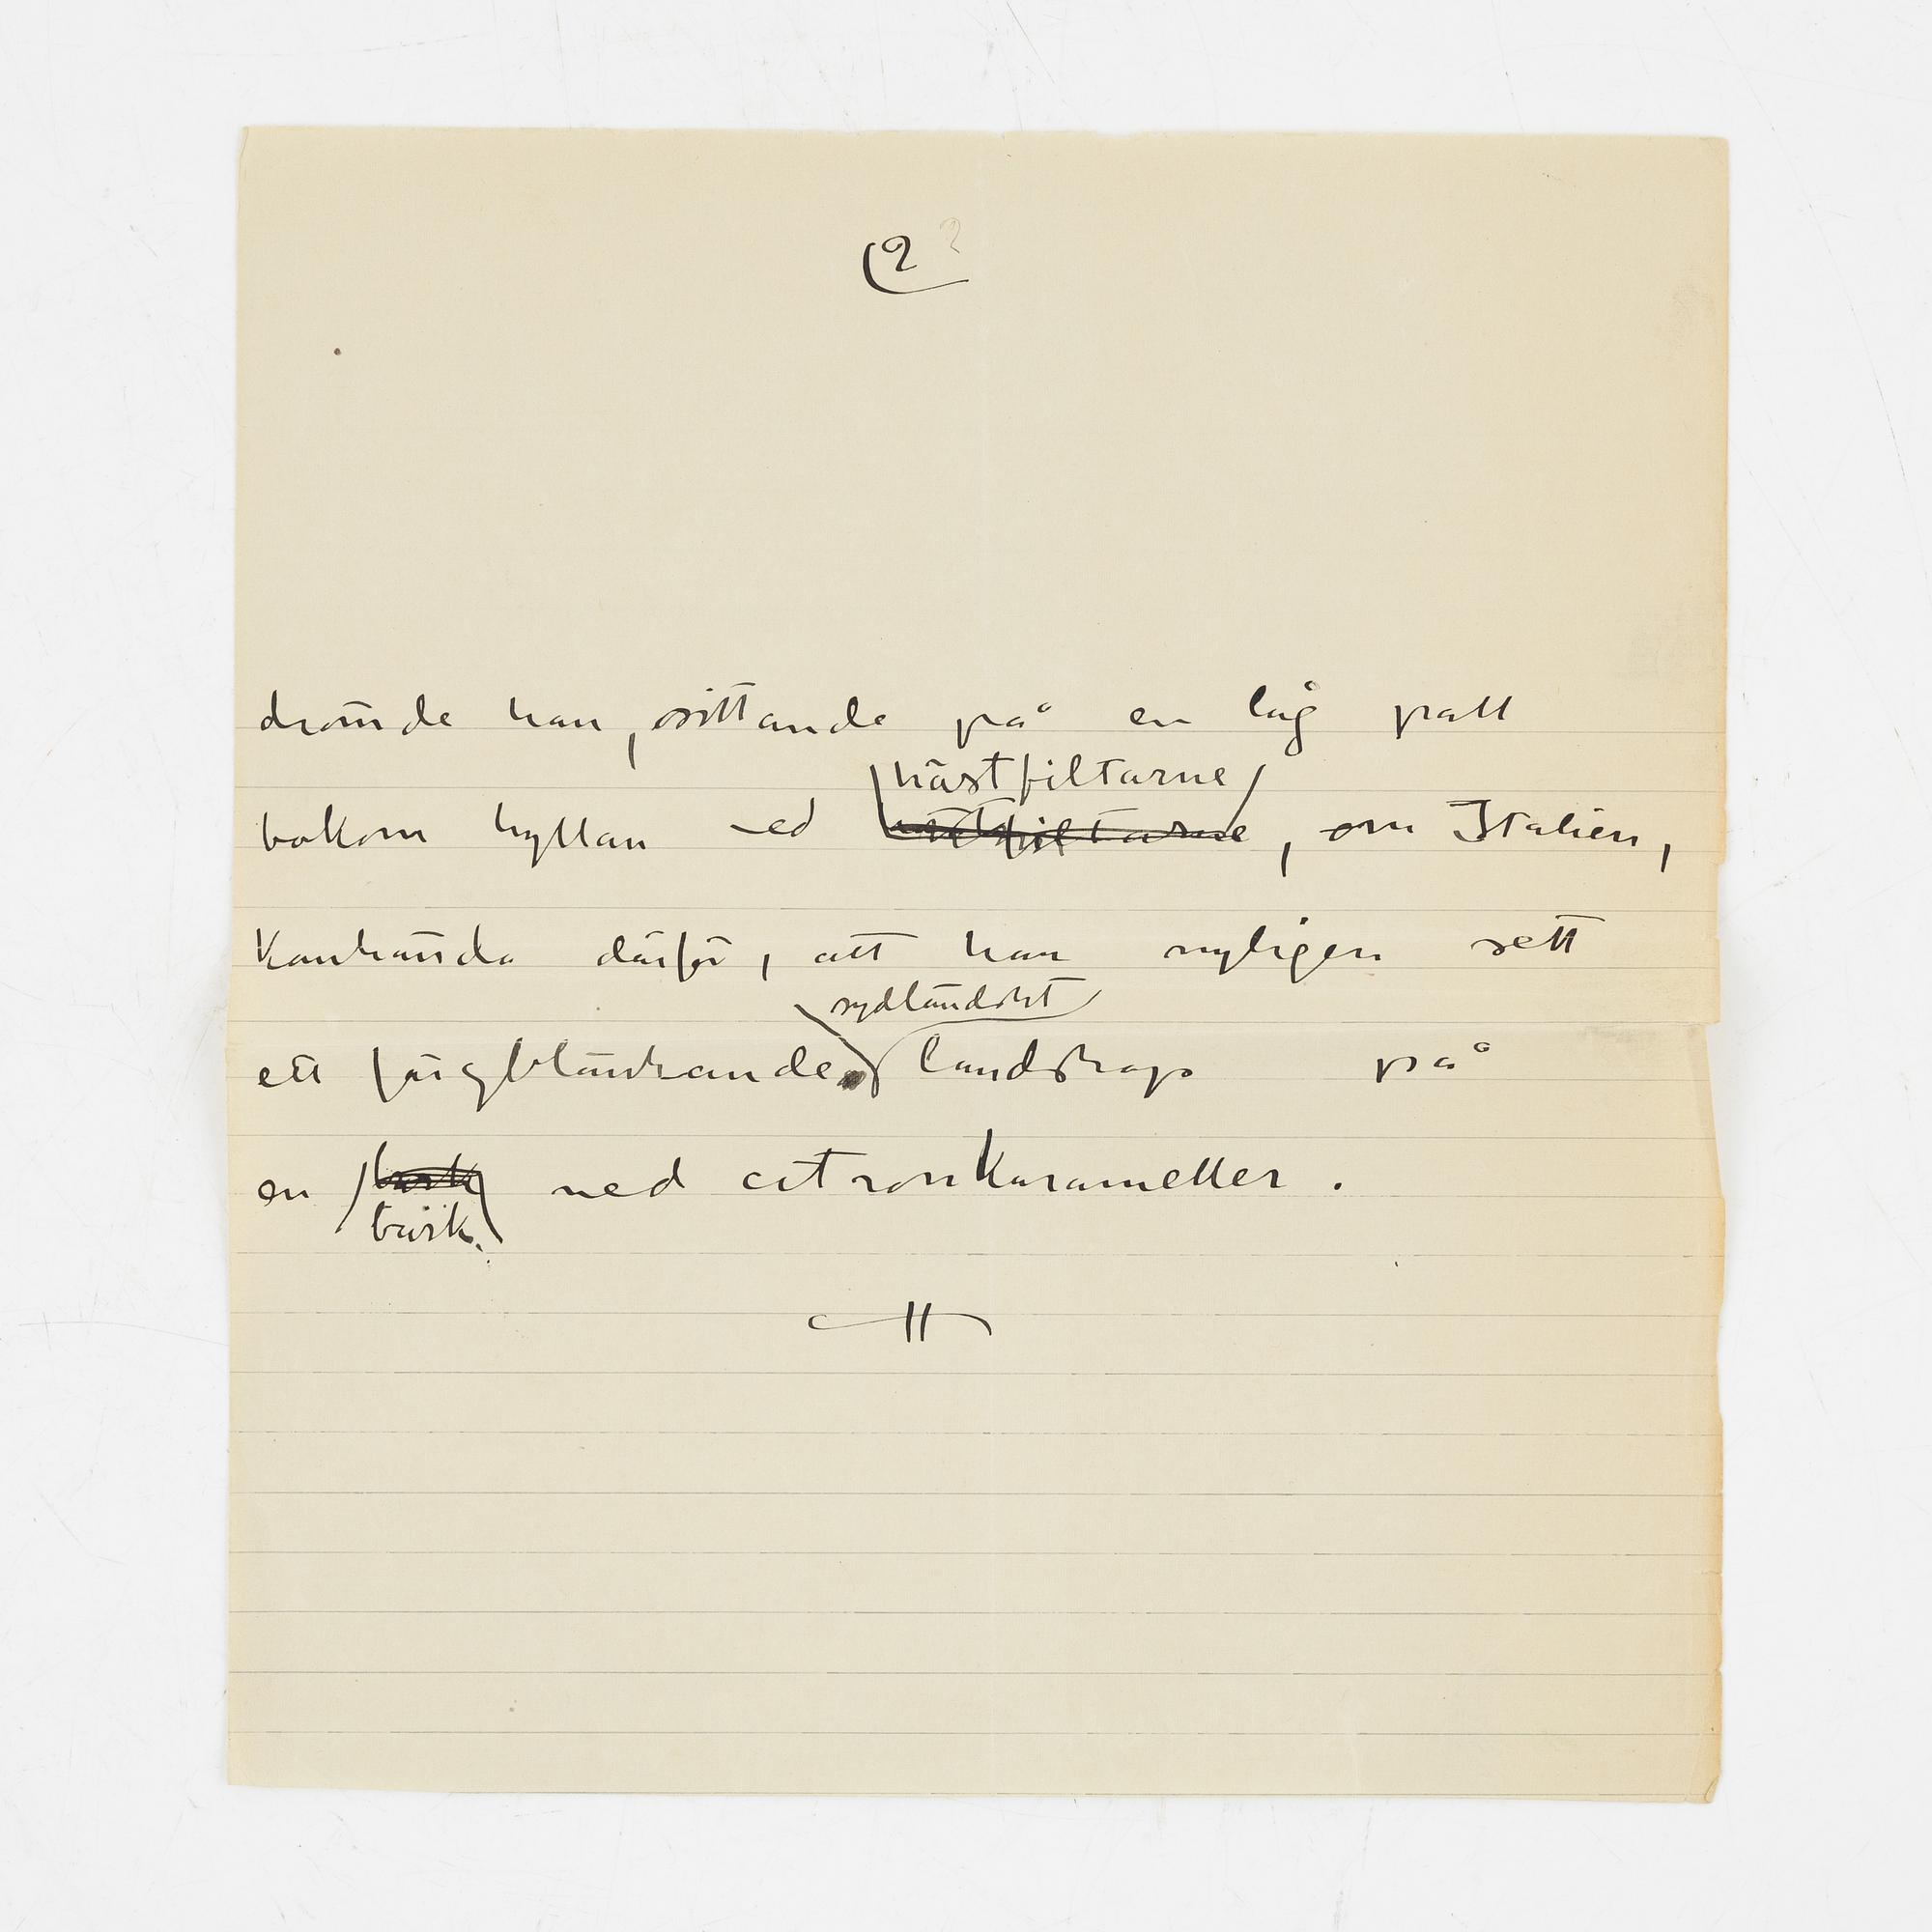 2 2
drömde han, sittande på en låg pall
hästfiltarne
bakom hyllan med hästfiltarne, om Italien,
kanhända därför, att han nyligen sett
sydländskt
ett färgblänkande landskap på
en burk med citronkarameller.
burk.